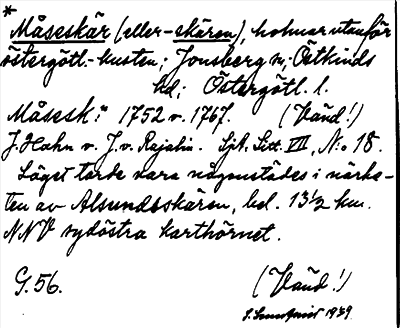 *
Måseskär (eller -skären), holmar utanför
östergötl.-kusten; Jonsberg sn; Östkinds
hd; Östergötl. l.
Måsesk:r 1752 o. 1767. (Vänd!)
J. Hahn o. J. v. Rajalin. Sjk. Litt. VII, N:o 18.
Läget torde vara någonstädes i närhe-
ten av Alsundsskären, bel. 13½ km.
NNV sydöstra karthörnet.
G. 56. (Vänd!)
1939